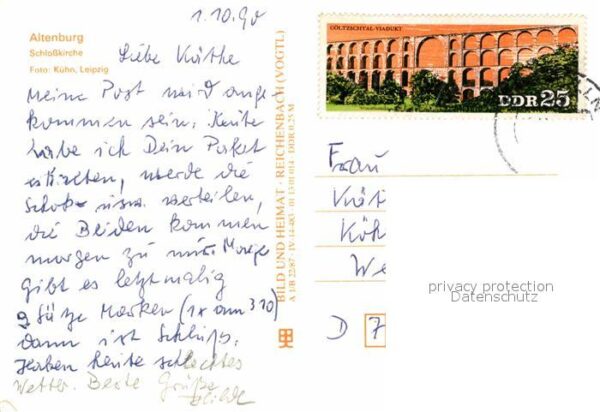 1.10.90
Altenburg
Schloßkirche
Foto: Kühn, Leipzig
Liebe Käthe
Meine Post wird ange
kommen sein. Heute
habe ich Dein Paket
erhalten, werde die
Schok- usw. verteilen,
die Beiden kommen
morgen zu mir. Morgen
gibt es letztmalig
9 Sätze Marken (1x am 3.10)
dann ist Schluß.
Haben heute schlechtes
Wetter. Beste Grüße
BILD UND HEIMAT · REICHENBACH (VOGTL)
A 1/B 22/87 · IV-14-483 · 01 13 01 014 · DDR 0,25 M
GÖLTZSCHTAL-VIADUKT
DDR 25
Frau
Kät
Köh
We
D 7
privacy protection
Datenschutz